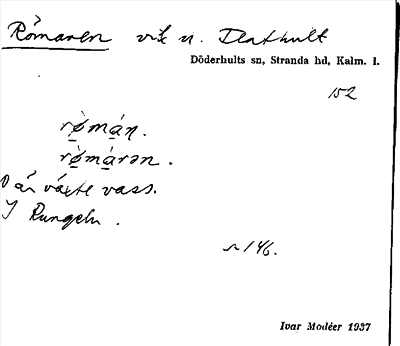 Römaren vik n. Flathult
Döderhults sn, Stranda hd, Kalm. l.
152
rø̀mán.
rø̀márən.
D är växte vass.
I Rungeln.
s. 146.
Ivar Modéer 1937